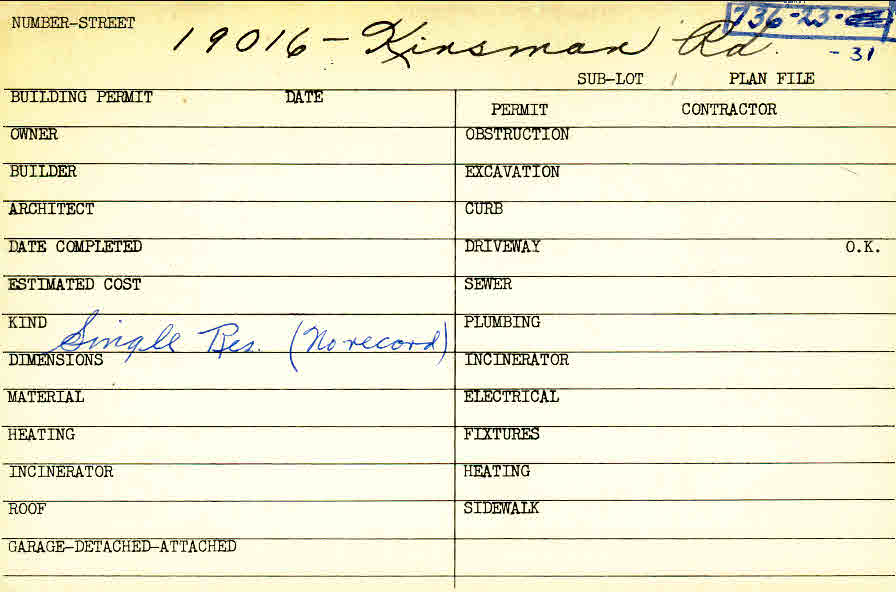 NUMBER-STREET 19016 - Kinsman Rd. 736-23-
- 31
SUB-LOT PLAN FILE
BUILDING PERMIT DATE
PERMIT CONTRACTOR
OWNER OBSTRUCTION
BUILDER EXCAVATION
ARCHITECT CURB
DATE COMPLETED DRIVEWAY O.K.
ESTIMATED COST SEWER
KIND Single Res. (No record) PLUMBING
DIMENSIONS INCINERATOR
MATERIAL ELECTRICAL
HEATING FIXTURES
INCINERATOR HEATING
ROOF SIDEWALK
GARAGE-DETACHED-ATTACHED